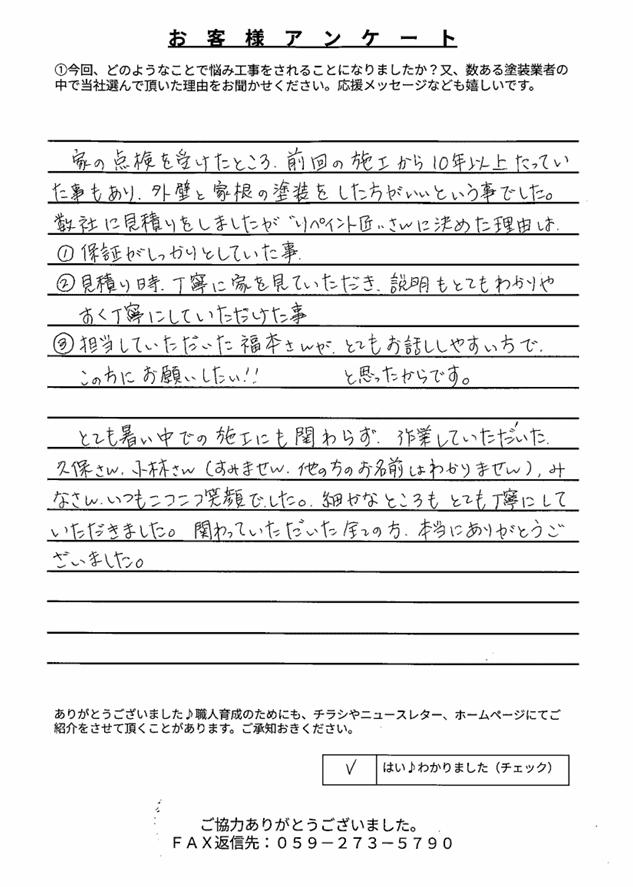 お客様アンケート
①今回、どのようなことで悩み工事をされることになりましたか？又、数ある塗装業者の
中で当社選んで頂いた理由をお聞かせください。応援メッセージなども嬉しいです。
家の点検を受けたところ、前回の施工から10年以上たってい
た事もあり、外壁と家根の塗装をした方がいいという事でした。
数社に見積りをしましたが“リペイント匠”さんに決めた理由は、
①保証がしっかりとしていた事、
②見積り時、丁寧に家を見ていただき、説明もとてもわかりや
すく丁寧にしていただけた事
③担当していただいた福本さんが、とてもお話ししやすい方で、
この方にお願いしたい!!　と思ったからです。
とても暑い中での施工にも関わらず、作業していただいた、
久保さん、小林さん(すみません、他の方のお名前はわかりません)、み
なさん、いつもニコニコ笑顔でした。細かなところもとても丁寧にして
いただきました。関わっていただいた全ての方、本当にありがとうご
ざいました。
ありがとうございました♪職人育成のためにも、チラシやニュースレター、ホームページにてご
紹介をさせて頂くことがあります。ご承知おきください。
✓ はい♪わかりました（チェック）
ご協力ありがとうございました。
ＦＡＸ返信先：０５９－２７３－５７９０